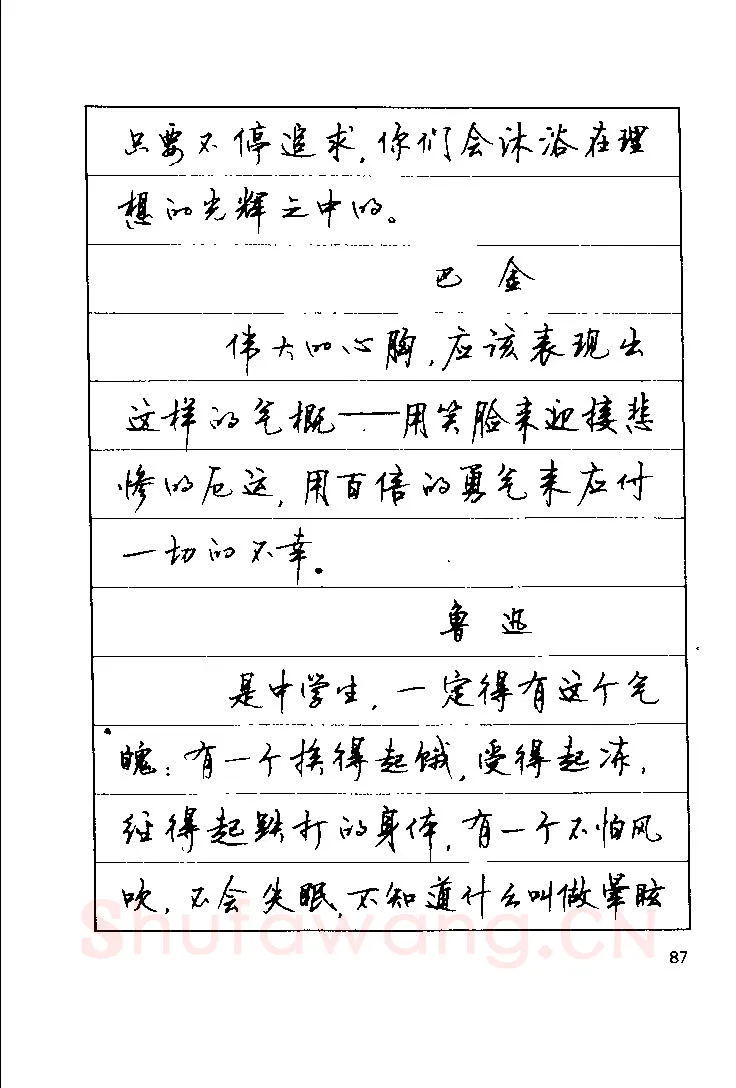 只要不停追求，你们会沐浴在理
想的光辉之中的。
巴金
伟大的心胸，应该表现出
这样的气概——用笑脸来迎接悲
惨的厄运，用百倍的勇气来应付
一切的不幸。
鲁迅
是中学生，一定得有这个气
魄：有一个挨得起饿，受得起冻，
经得起跌打的身体，有一个不怕风
吹，不会失眠，不知道什么叫做晕眩
Shufawang.CN
87